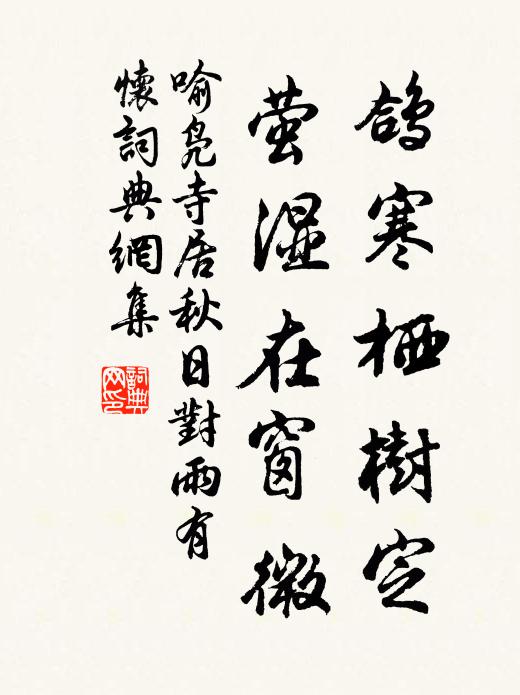 鴿寒栖樹定
萤湿在窗微
喻凫寺居秋日對雨有
懷詞典網集
詞典网印